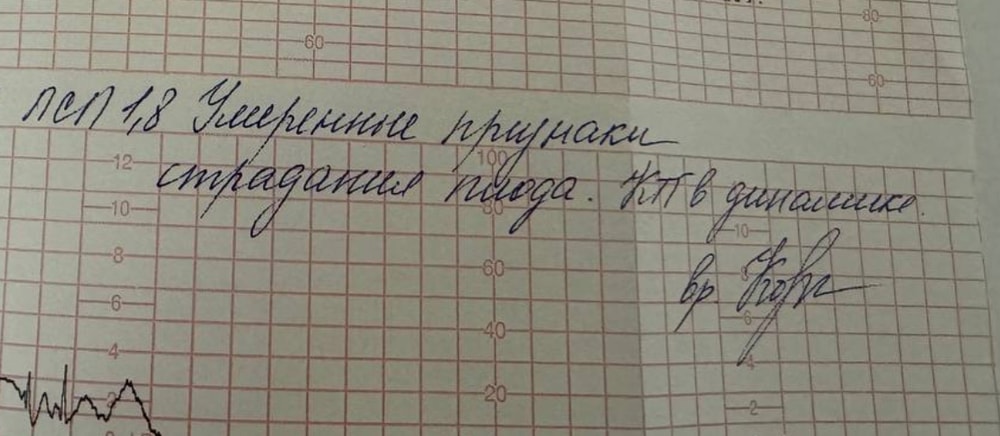 60
80
60
ПСП 1,8 Умеренные признаки
страдания плода. КТГ в динамике.
вр.
12
10
8
6
4
100
80
60
40
20
10
8
6
4
2